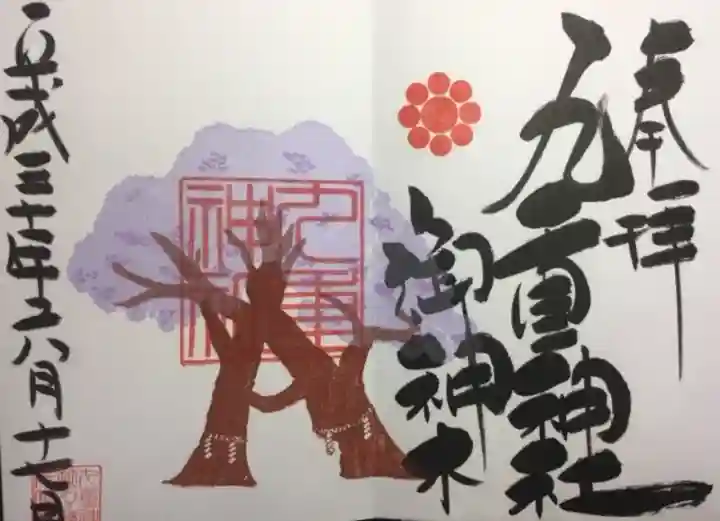 奉拝
九重神社
御神木
九重神社
平成三十年六月十七日